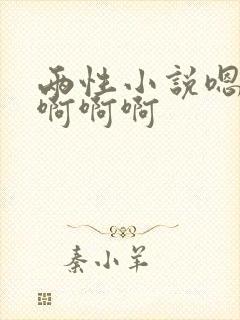 两性小説嗯
啊啊啊
秦小羊